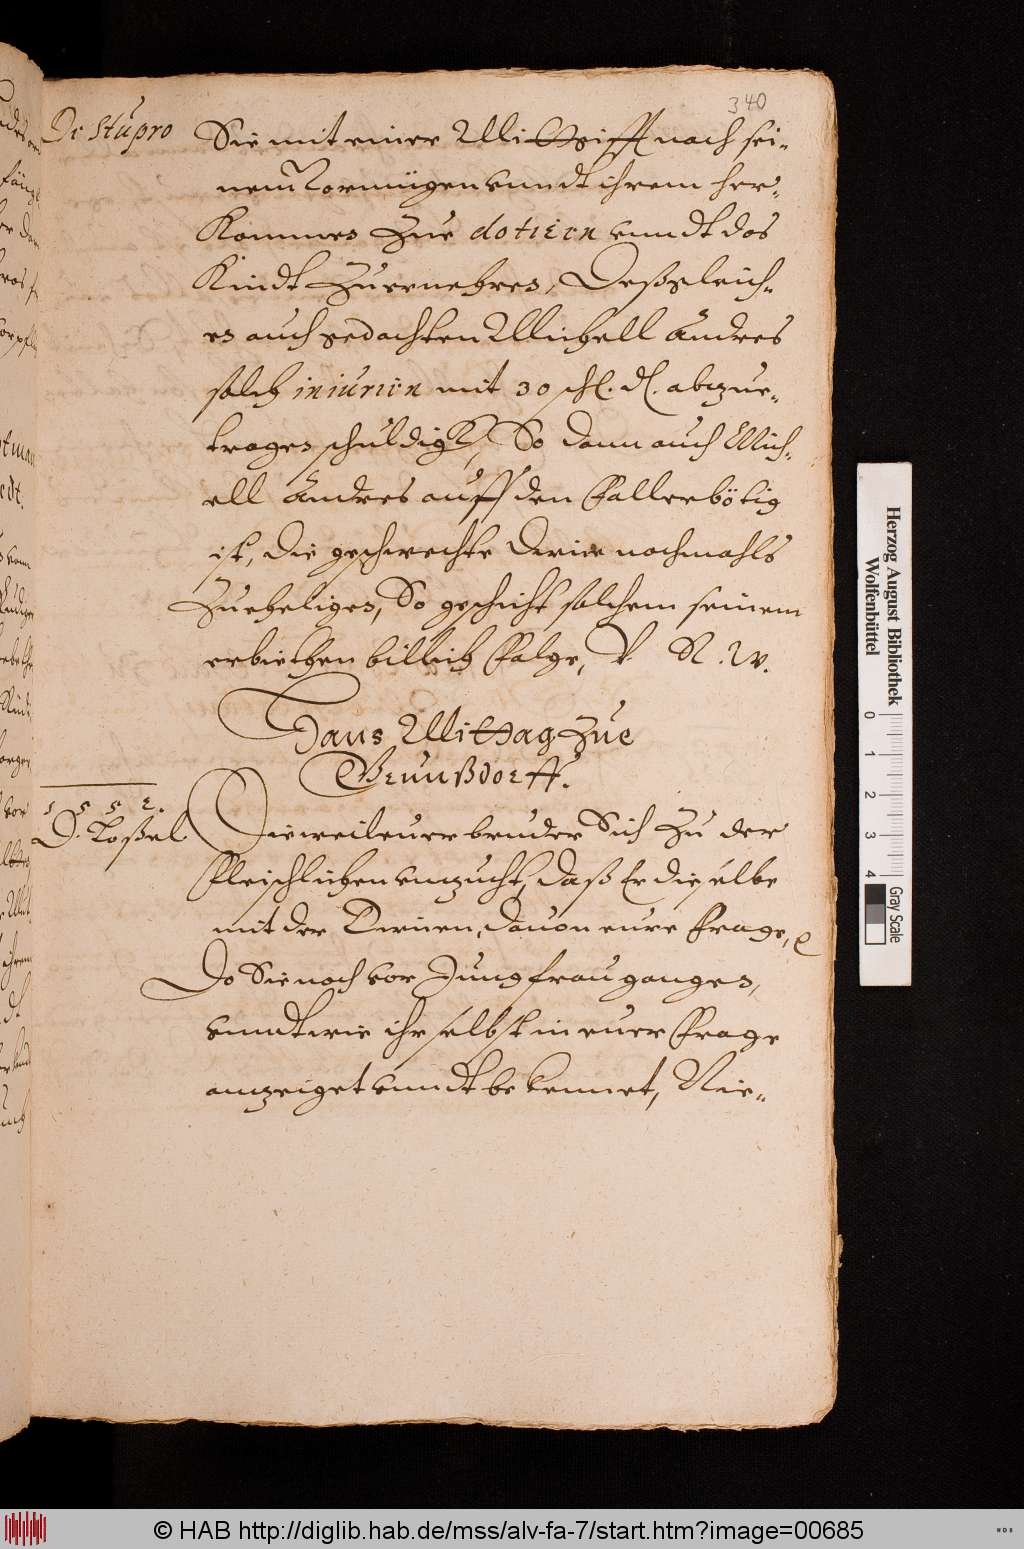 340
De Stupro
Sie mit einer Mittgifft nach sei-
nem Vormügen vnndt ihrem her-
kommen Zue dotiern vnndt das
Kindt Zuernehren, Deßgleich-
en auch gedachten Michell Andres
solch iniurien mit 30 schl. d. abzue-
tragen schuldigk, So dann auch Mich-
ell Andres auff den Fall erbötig
ist, die geschwechte Dirne nochmahls
Zueheligen, So geschicht solchem seinem
erbiethen billich Folge, V. R. W.
Hans Mittag Zue
Brunßdorff.
1 5 5 2.
D. Koßel
Dieweil euer bruder Sich Zu der
Fleischlichen vnzucht, daß Er dieselbe
mit der Dirnen, dauon eure Frage,
Do Sie noch vor Jungfrau gangen,
vnndt wie ihr selbst in euer Frage
anzeiget vnndt bekennet, Nie-
Herzog August Bibliothek
Wolfenbüttel
0 1 2 3 4
Gray Scale
© HAB http://diglib.hab.de/mss/alv-fa-7/start.htm?image=00685